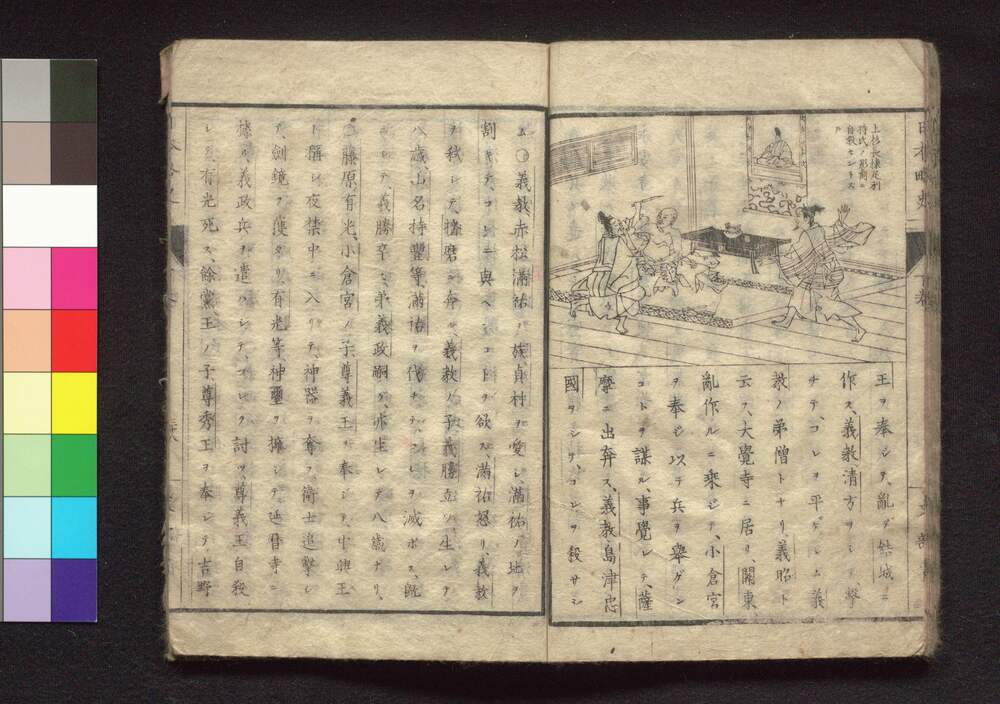 上杉ノ衆僕足利
持氏ノ影前ニ
自殺セントス
日本略史
王ヲ奉シテ、亂ヲ結城ニ
作ス、義教清方ヲシテ、撃
チテ、コレヲ平ゲシム、義
教ノ弟僧トナリ、義昭ト
云ヲ、大覺寺ニ居リ關東
亂作ルニ乘ジテ、小倉宮
ヲ奉ジ以テ兵ヲ舉ゲン
コトヲ謀ル、事覺レテ、薩
摩ニ出奔ス、義教島津忠
國ヲシテ、コレヲ殺サシ
ム、〇義教赤松滿祐ノ族貞村ヲ愛シ、滿祐ノ地ヲ
割キテ、コレニ與ヘンコトヲ欲ス、滿祐怒リ、義教
ヲ弑シテ、播磨ニ奔ル、義教ノ子義勝立ツ、生レテ
八歳、山名持豐等、滿祐ヲ伐チテ、コレヲ滅ボス、既
ニシテ、義勝卒ス、弟義政嗣グ、亦生レテ八歳ナリ、
〇藤原有光、小倉宮ノ子尊義王ヲ奉シテ、中興王
ト稱シ、夜禁中ニ入リテ、神器ヲ奪フ、衛士追撃シ
テ、劍鏡ヲ獲タリ、有光等、神璽ヲ擁シテ、延暦寺ニ
據ル、義政兵ヲ遣ハシテ、コレヲ討ツ、尊義王自殺
シ、有光死ス、餘黨、王ノ子尊秀王ヲ奉シテ吉野